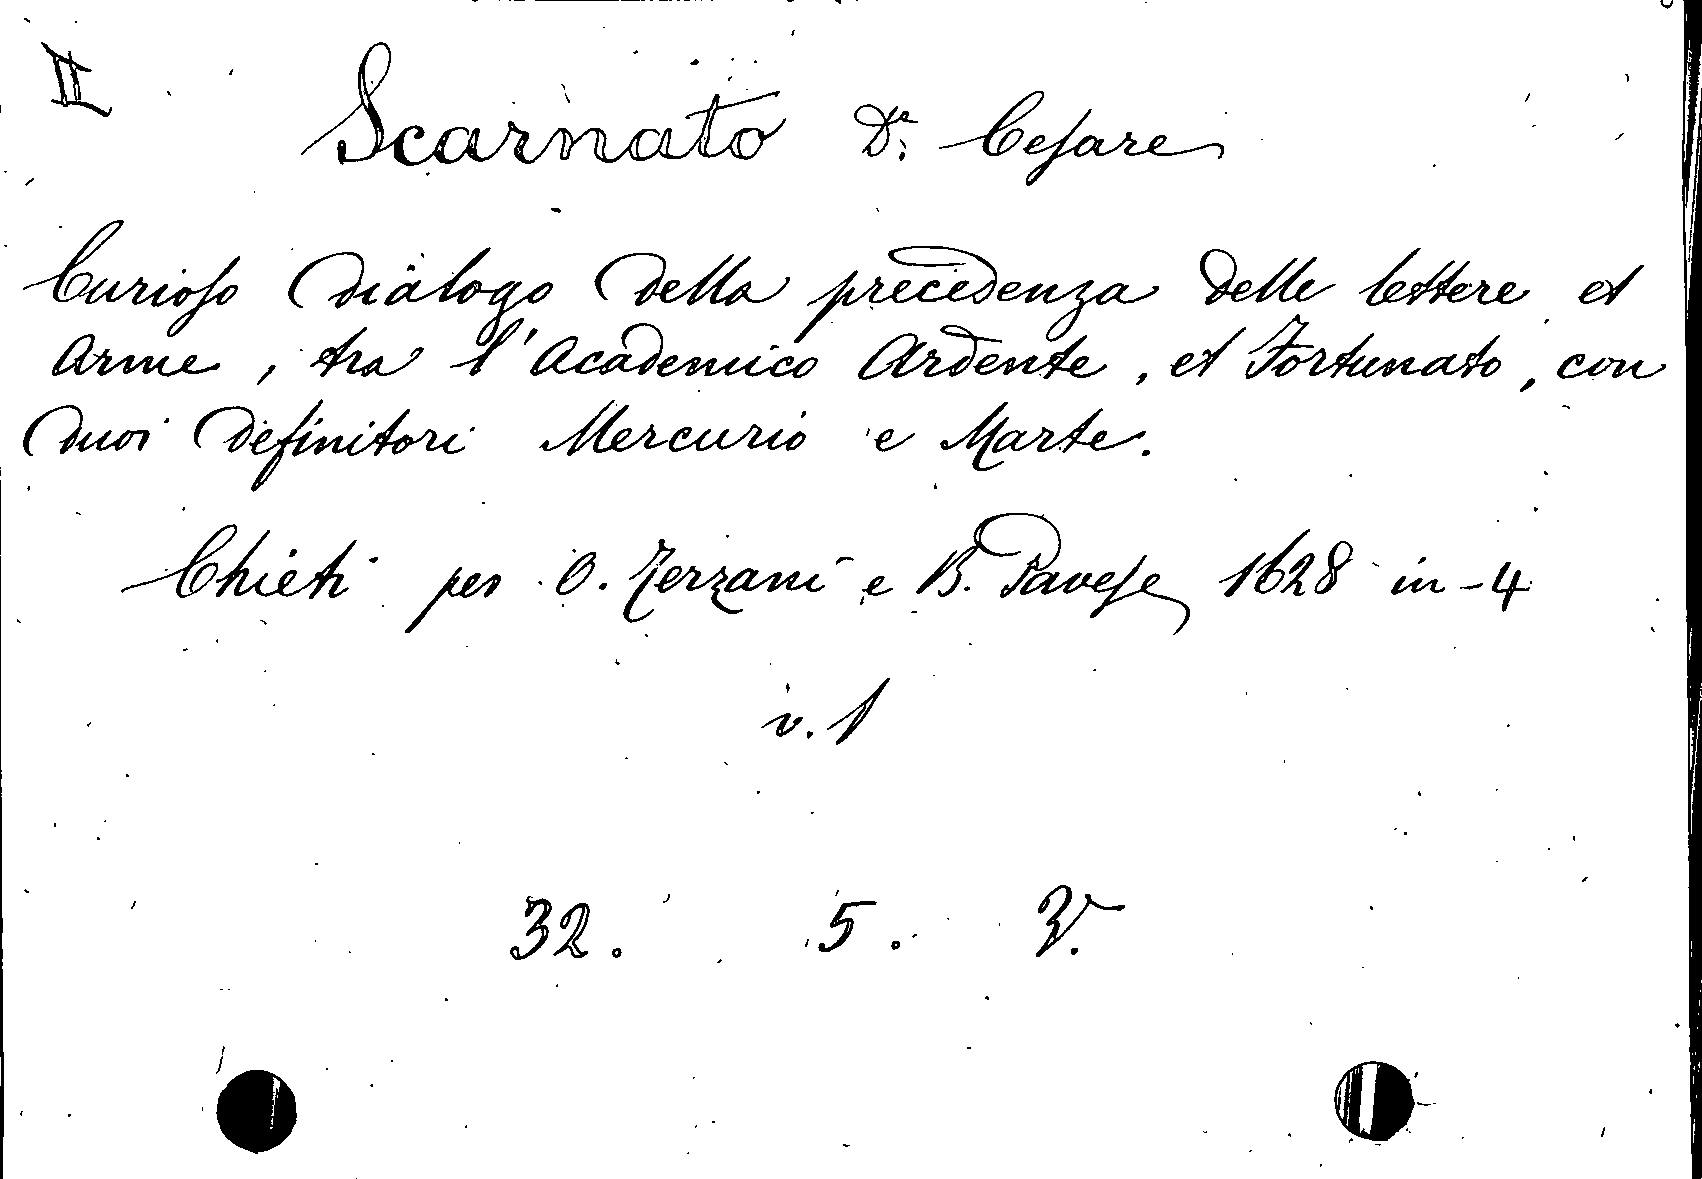 II
Scarnato Dr. Cesare
Curioso dialogo della precedenza delle lettere et
Arme, tra l'Academico Ardente, et Fortunato, con
duoi definitori Mercurio e Marte.
Chieti per O. Terzani e B. Pavese 1628 in-4
v. 1
32. 5.